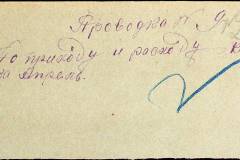 Проводка П
По приходу и расходу
на Апрель.